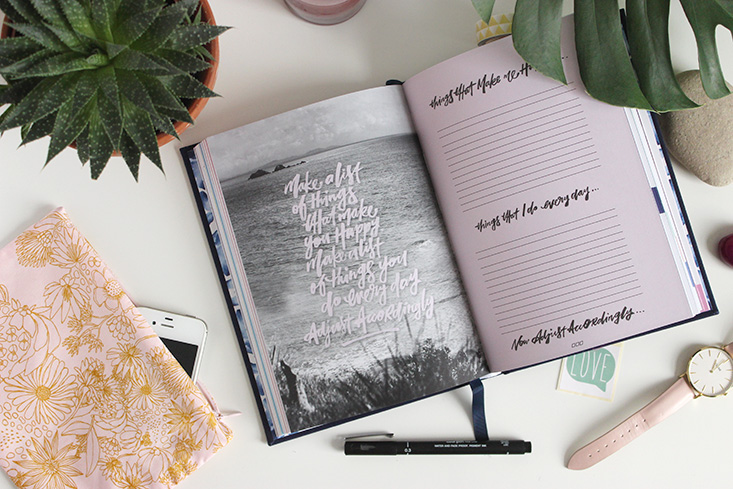 Make a list
of things
that make
you Happy
Make a list
of things you
do every day
Adjust Accordingly
things that Make me
things that I do every day...
Now Adjust Accordingly...
LOVE
0.3